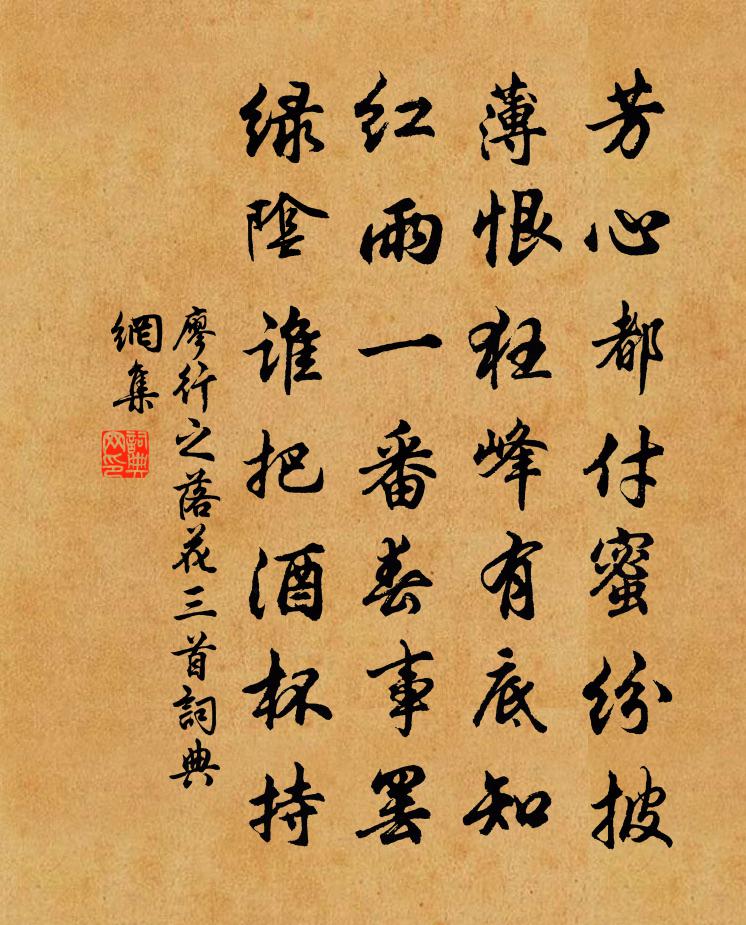 芳心都付蜜纷披
薄恨狂峰有底知
红雨一番春事罢
绿陰谁把酒杯持
廖行之落花三首詞典
網集
詞典
网印